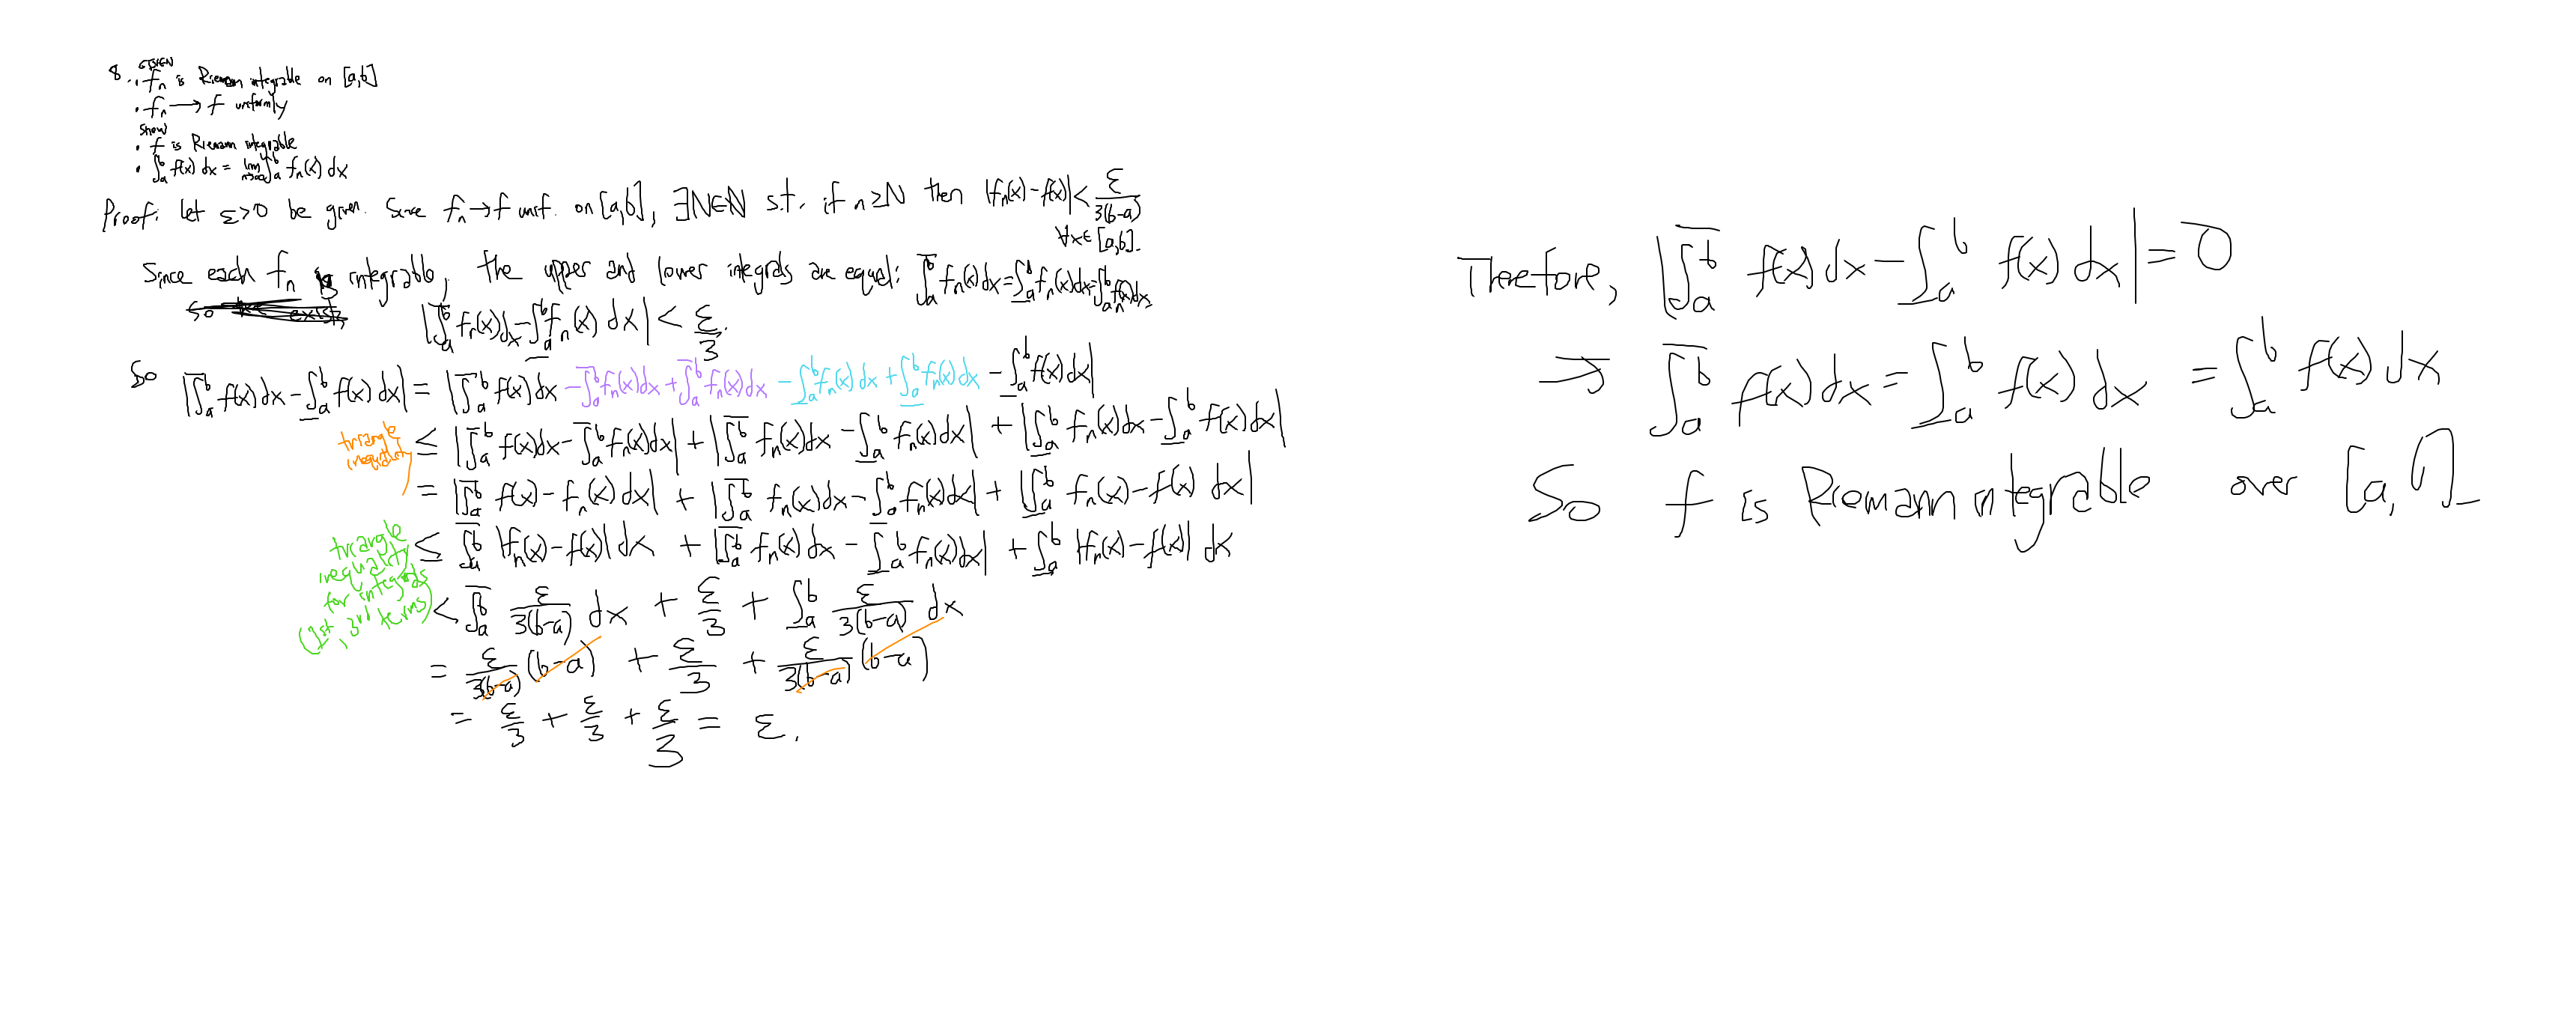 8. GIVEN
• fₙ is Riemann integrable on [a,b]
• fₙ → f uniformly
Show
• f is Riemann integrable
• ∫ₐᵇ f(x) dx = lim_{n→∞} ∫ₐᵇ fₙ(x) dx
Proof: Let ε>0 be given. Since fₙ→f unif. on [a,b], ∃N∈ℕ s.t. if n≥N then |fₙ(x)-f(x)| < ε/3(b-a)
∀x∈[a,b].
Since each fₙ is integrable, the upper and lower integrals are equal: ∫̅ₐᵇ fₙ(x)dx = ∫̲ₐᵇ fₙ(x)dx = ∫ₐᵇ fₙ(x)dx
|∫̅ₐᵇ fₙ(x)dx - ∫̲ₐᵇ fₙ(x) dx| < ε/3.
So |∫̅ₐᵇ f(x)dx - ∫̲ₐᵇ f(x)dx| = |∫̅ₐᵇ f(x)dx - ∫̅ₐᵇ fₙ(x)dx + ∫̅ₐᵇ fₙ(x)dx - ∫̲ₐᵇ fₙ(x)dx + ∫̲ₐᵇ fₙ(x)dx - ∫̲ₐᵇ f(x)dx|
triangle inequality
≤ |∫̅ₐᵇ f(x)dx - ∫̅ₐᵇ fₙ(x)dx| + |∫̅ₐᵇ fₙ(x)dx - ∫̲ₐᵇ fₙ(x)dx| + |∫̲ₐᵇ fₙ(x)dx - ∫̲ₐᵇ f(x)dx|
= |∫̅ₐᵇ f(x)-fₙ(x) dx| + |∫̅ₐᵇ fₙ(x)dx - ∫̲ₐᵇ fₙ(x)dx| + |∫̲ₐᵇ fₙ(x)-f(x) dx|
triangle
inequality
for integrals
(1st, 3rd terms)
≤ ∫̅ₐᵇ |fₙ(x)-f(x)| dx + |∫̅ₐᵇ fₙ(x)dx - ∫̲ₐᵇ fₙ(x)dx| + ∫̲ₐᵇ |fₙ(x)-f(x)| dx
< ∫̅ₐᵇ ε/3(b-a) dx + ε/3 + ∫̲ₐᵇ ε/3(b-a) dx
= ε/3(b-a) (b-a) + ε/3 + ε/3(b-a) (b-a)
= ε/3 + ε/3 + ε/3 = ε.
Therefore, |∫̅ₐᵇ f(x)dx - ∫̲ₐᵇ f(x) dx| = 0
⇒ ∫̅ₐᵇ f(x)dx = ∫̲ₐᵇ f(x) dx = ∫ₐᵇ f(x) dx
So f is Riemann integrable over [a,